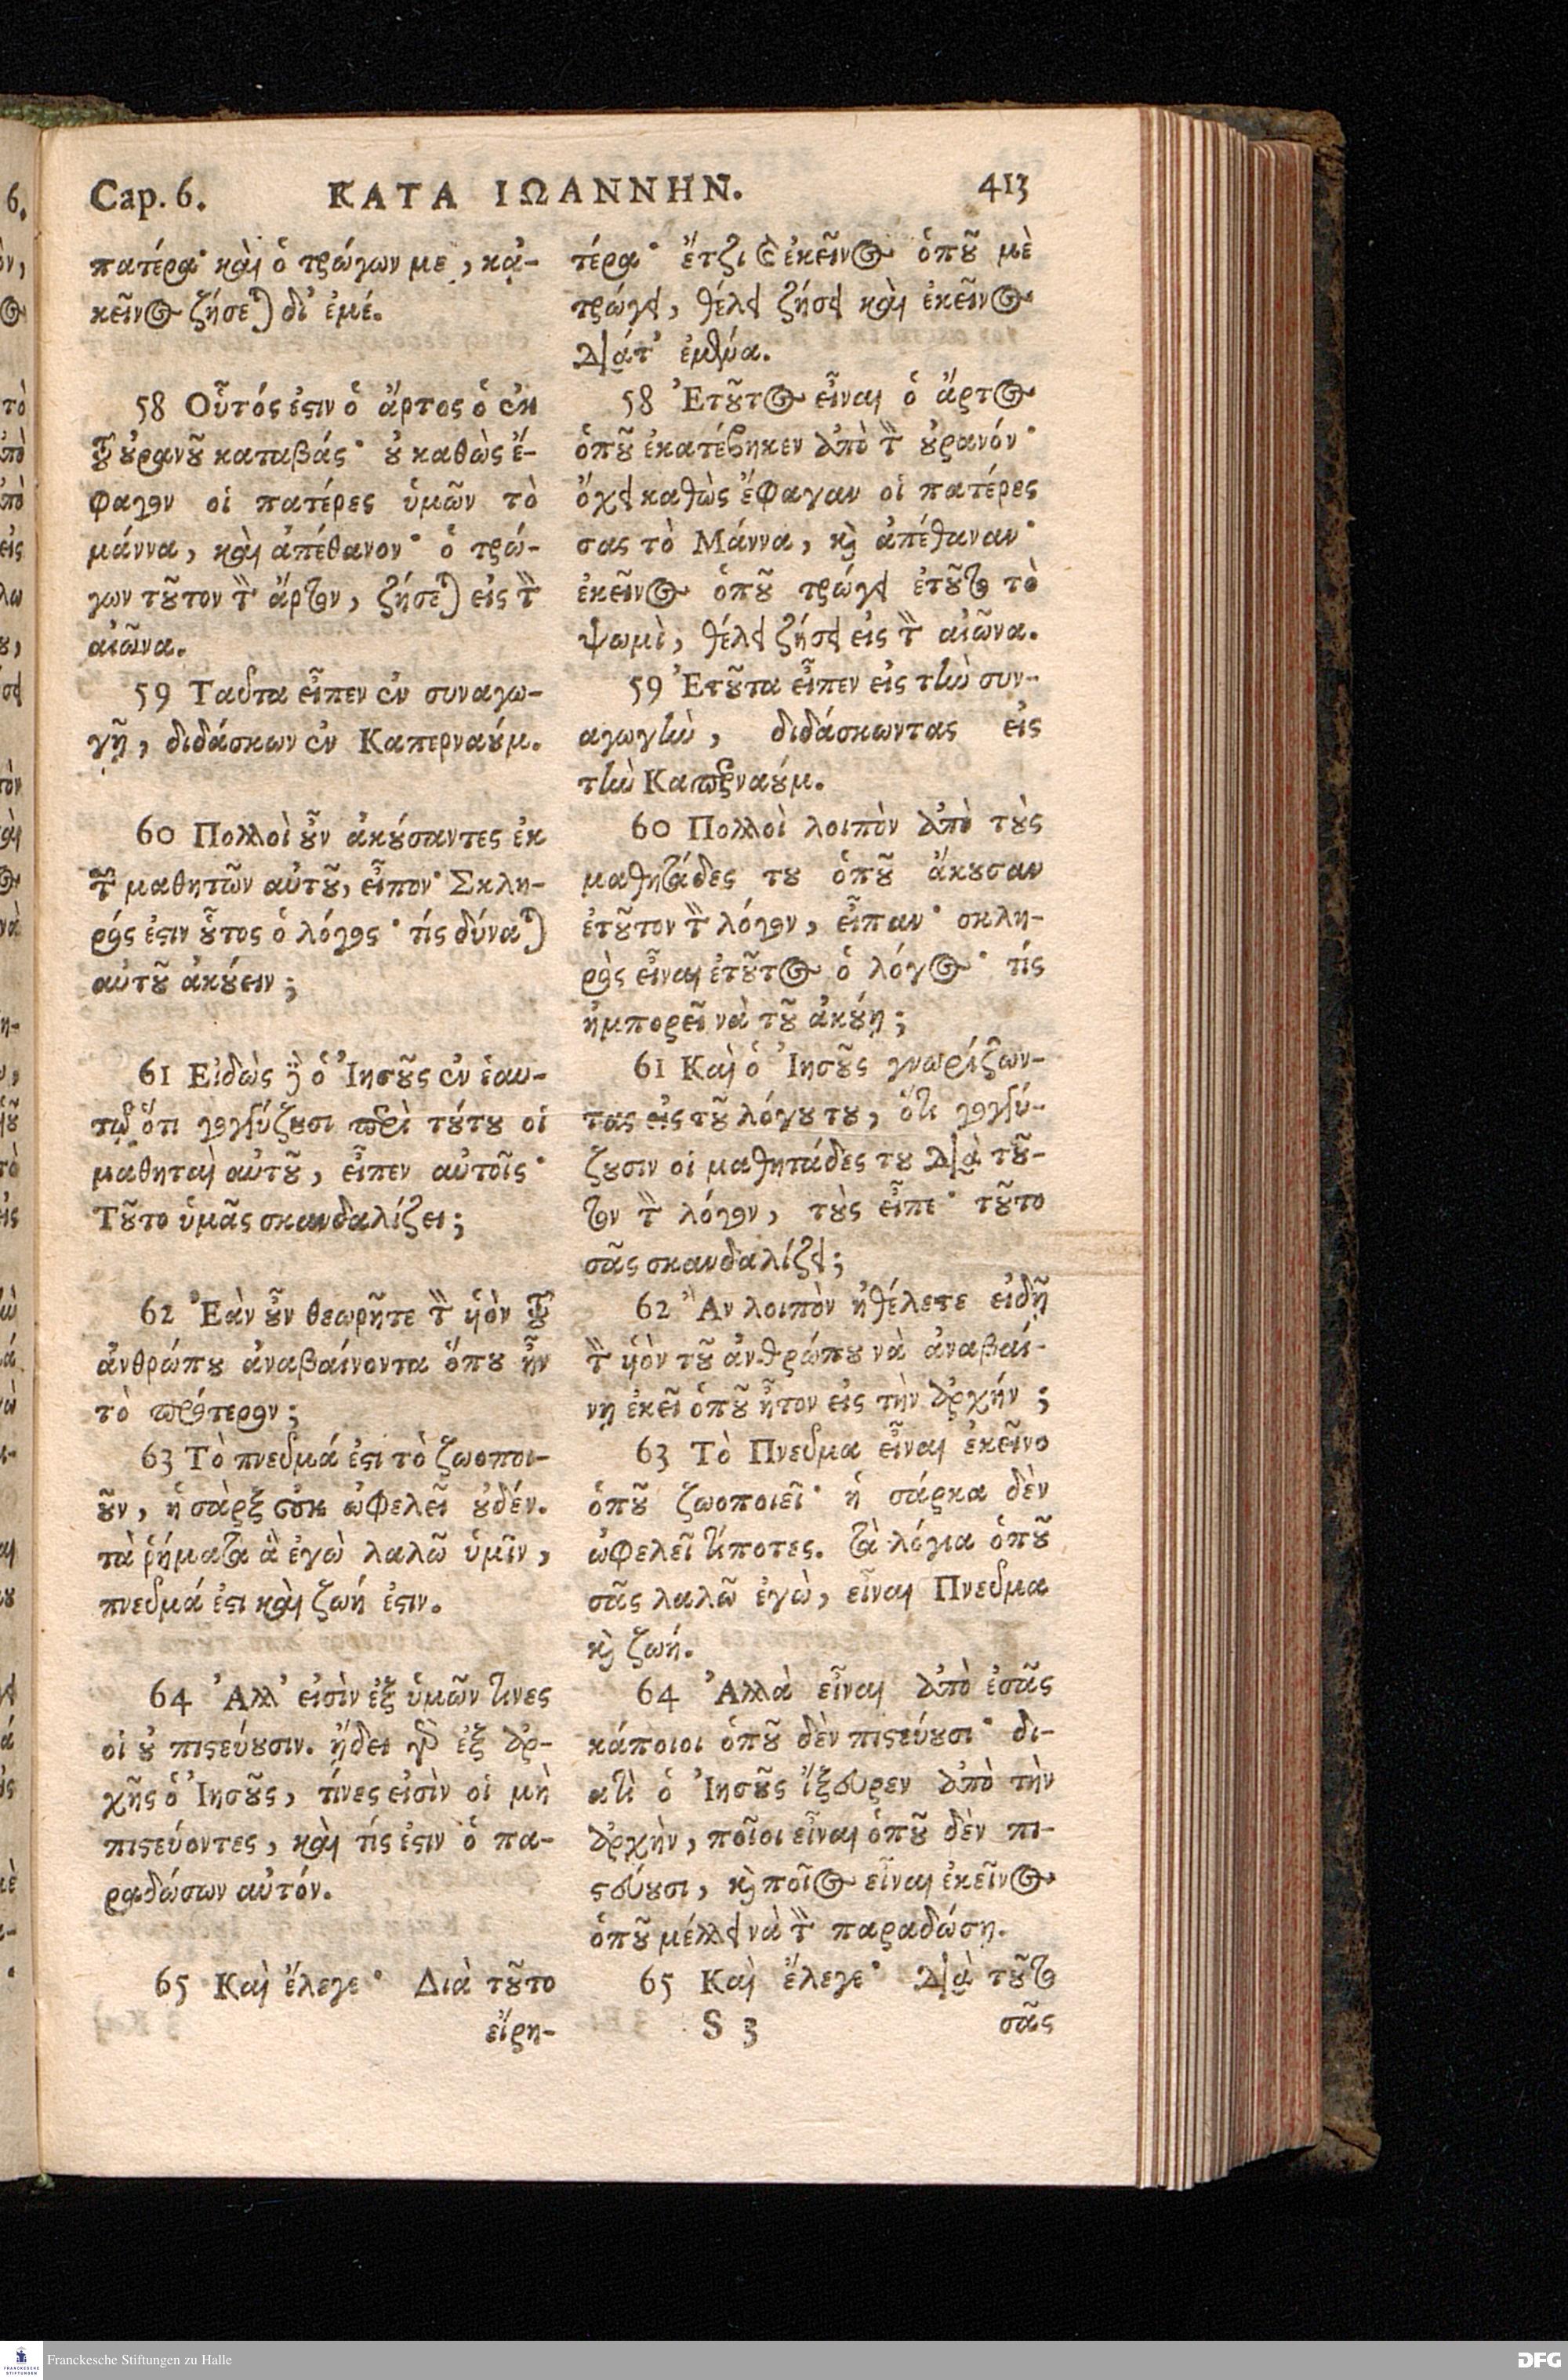 Cap. 6.
ΚΑΤΑ ΙΩΑΝΝΗΝ.
413
πατέρα· καὶ ὁ τρώγων με, κἀ-
κεῖνος ζήσεται δι' ἐμέ.
58 Οὗτός ἐστιν ὁ ἄρτος ὁ ἐκ
τοῦ οὐρανοῦ καταβάς· οὐ καθὼς ἔ-
φαγον οἱ πατέρες ὑμῶν τὸ
μάννα, καὶ ἀπέθανον· ὁ τρώ-
γων τοῦτον τὸν ἄρτον, ζήσεται εἰς τὸν
αἰῶνα.
59 Ταῦτα εἶπεν ἐν συναγω-
γῇ, διδάσκων ἐν Καπερναούμ.
60 Πολλοὶ οὖν ἀκούσαντες ἐκ
τῶν μαθητῶν αὐτοῦ, εἶπον· Σκλη-
ρός ἐστιν οὗτος ὁ λόγος· τίς δύναται
αὐτοῦ ἀκούειν;
61 Εἰδὼς δὲ ὁ Ἰησοῦς ἐν ἑαυ-
τῷ ὅτι γογγύζουσι περὶ τούτου οἱ
μαθηταὶ αὐτοῦ, εἶπεν αὐτοῖς·
Τοῦτο ὑμᾶς σκανδαλίζει;
62 Ἐὰν οὖν θεωρῆτε τὸν υἱὸν τοῦ
ἀνθρώπου ἀναβαίνοντα ὅπου ἦν
τὸ πρότερον;
63 Τὸ πνεῦμά ἐστι τὸ ζωοποι-
οῦν, ἡ σὰρξ οὐκ ὠφελεῖ οὐδέν.
τὰ ῥήματα ἃ ἐγὼ λαλῶ ὑμῖν,
πνεῦμά ἐστι καὶ ζωή ἐστιν.
64 Ἀλλ' εἰσὶν ἐξ ὑμῶν τινες
οἳ οὐ πιστεύουσιν. ᾔδει γὰρ ἐξ ἀρ-
χῆς ὁ Ἰησοῦς, τίνες εἰσὶν οἱ μὴ
πιστεύοντες, καὶ τίς ἐστιν ὁ πα-
ραδώσων αὐτόν.
65 Καὶ ἔλεγε· Διὰ τοῦτο
εἴρη-
τέρα· ἔτζι καὶ ἐκεῖνος ὁποῦ μὲ
τρώγει, θέλει ζήσει καὶ ἐκεῖνος
διάτ' ἐμένα.
58 Ἐτοῦτος εἶναι ὁ ἄρτος
ὁποῦ ἐκατέβηκεν ἀπὸ τὸν οὐρανόν·
ὄχι καθὼς ἔφαγαν οἱ πατέρες
σας τὸ Μάννα, καὶ ἀπέθαναν·
ἐκεῖνος ὁποῦ τρώγει ἐτοῦτο τὸ
ψωμὶ, θέλει ζήσει εἰς τὸν αἰῶνα.
59 Ἐτοῦτα εἶπεν εἰς τὴν συν-
αγωγὴν, διδάσκωντας εἰς
τὴν Καπερναούμ.
60 Πολλοὶ λοιπὸν ἀπὸ τοὺς
μαθητάδες του ὁποῦ ἄκουσαν
ἐτοῦτον τὸν λόγον, εἶπαν· σκλη-
ρὸς εἶναι ἐτοῦτος ὁ λόγος· τίς
ἠμπορεῖ νὰ τοῦ ἀκούῃ;
61 Καὶ ὁ Ἰησοῦς γνωρίζων-
τας εἰς τοῦ λόγου του, ὅτι γογγύ-
ζουσιν οἱ μαθητάδες του διὰ τοῦ-
τον τὸν λόγον, τοὺς εἶπε· τοῦτο
σᾶς σκανδαλίζει;
62 Ἂν λοιπὸν ἠθέλετε εἰδῆ
τὸν υἱὸν τοῦ ἀνθρώπου νὰ ἀναβαί-
νῃ ἐκεῖ ὁποῦ ἦτον εἰς τὴν ἀρχήν;
63 Τὸ Πνεῦμα εἶναι ἐκεῖνο
ὁποῦ ζωοποιεῖ· ἡ σάρκα δὲν
ὠφελεῖ τίποτες. τὰ λόγια ὁποῦ
σᾶς λαλῶ ἐγὼ, εἶναι Πνεῦμα
καὶ ζωή.
64 Ἀλλὰ εἶναι ἀπὸ ἐσᾶς
κάποιοι ὁποῦ δὲν πιστεύουσι· δι-
ατὶ ὁ Ἰησοῦς ἴξευρεν ἀπὸ τὴν
ἀρχὴν, ποῖοι εἶναι ὁποῦ δὲν πι-
στεύουσι, καὶ ποῖος εἶναι ἐκεῖνος
ὁποῦ μέλλει νὰ τὸν παραδώσῃ.
65 Καὶ ἔλεγε· Διὰ τοῦτο
S 3
σᾶς
Franckesche Stiftungen zu Halle
DFG